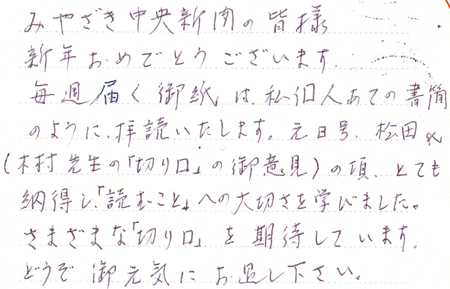 みやざき中央新聞の皆様
新年おめでとうございます。
毎週届く御紙は、私個人あての書簡
のように、拝読いたします。元日号、松田氏
(木村先生の「切り口」の御意見)の項、とても
納得し、「読むこと」への大切さを学びました。
さまざまな「切り口」を期待しています。
どうぞ御元気にお過し下さい。